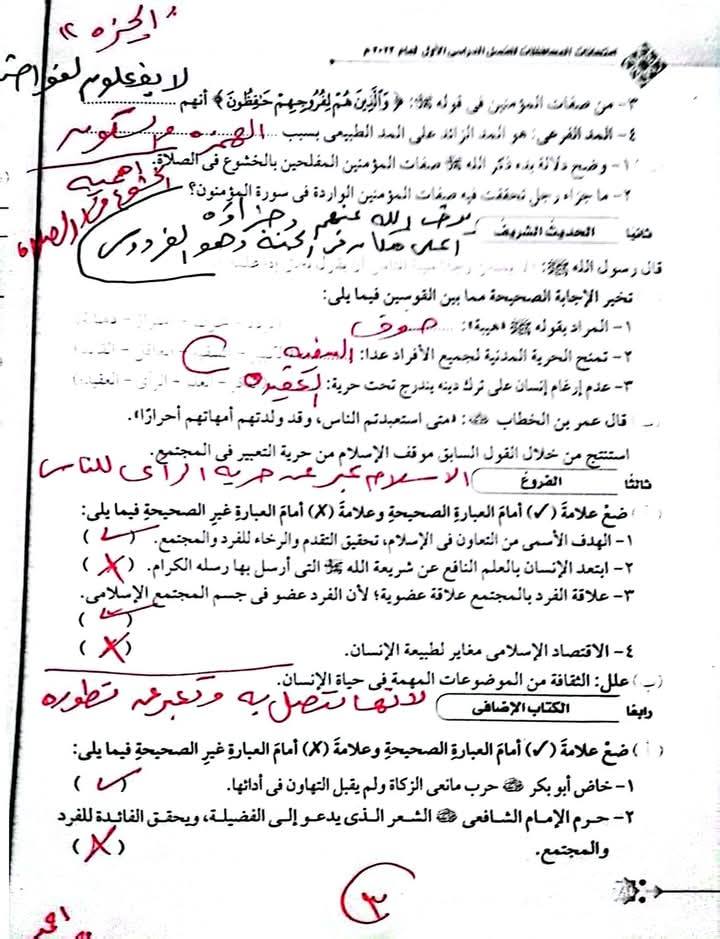 "الجيزه ٢"
امتحانات المحافظات للفصل الدراسى الأول لعام ٢٠٢٢م
لا يفعلون الفواحش
٣- من صفات المؤمنين فى قوله ﷺ: ﴿ وَالَّذِينَ هُمْ لِفُرُوجِهِمْ حَافِظُونَ ﴾ أنهم
٤- المد الفرعى: هو المد الزائد على المد الطبيعى بسبب الهمزه والسكون
١- وضح دلالة بدء ذكر الله ﷺ صفات المؤمنين المفلحين بالخشوع فى الصلاة.
اهمية الخشوع فى الصلاه
٢- ما جزاء رجل تحققت فيه صفات المؤمنين الواردة فى سورة المؤمنون؟
الله عنهم وجزاؤه
اعلى مكان فى الجنة وهو الفردوس
ثانيا الحديث الشريف
قال رسول الله ﷺ:
تخير الإجابة الصحيحة مما بين القوسين فيما يلى:
١- المراد بقوله ﷺ «هيبة»: خوف
٢- تمنح الحرية المدنية لجميع الأفراد عدا: السفيه
٣- عدم إرغام إنسان على ترك دينه يندرج تحت حرية: العقيده الرأى - العقيدة)
قال عمر بن الخطاب: «متى استعبدتم الناس، وقد ولدتهم أمهاتهم أحرارًا».
استنتج من خلال القول السابق موقف الإسلام من حرية التعبير فى المجتمع.
الاسلام عبر عن حريه الرأى للناس
ثالثًا الفروع
ضعْ علامة (✓) أمامَ العبارةِ الصحيحةِ وعلامة (✗) أمامَ العبارة غيرِ الصحيحةِ فيما يلى:
١- الهدف الأسمى من التعاون فى الإسلام، تحقيق التقدم والرخاء للفرد والمجتمع. (✓)
٢- ابتعد الإنسان بالعلم النافع عن شريعة الله ﷺ التى أرسل بها رسله الكرام. (✗)
٣- علاقة الفرد بالمجتمع علاقة عضوية؛ لأن الفرد عضو فى جسم المجتمع الإسلامى. (✓)
٤- الاقتصاد الإسلامى مغاير لطبيعة الإنسان. (✗)
(ب) علل: الثقافة من الموضوعات المهمة فى حياة الإنسان.
لانها تتصل به وتعبر عن تطوره
رابعًا الكتاب الإضافى
(أ) ضعْ علامة (✓) أمامَ العبارةِ الصحيحةِ وعلامة (✗) أمامَ العبارة غيرِ الصحيحةِ فيما يلى:
١- خاض أبو بكر حرب مانعى الزكاة ولم يقبل التهاون فى أدائها. (✓)
٢- حرم الإمام الشافعى الشعر الذى يدعو إلى الفضيلة، ويحقق الفائدة للفرد
والمجتمع. (✗)
٣